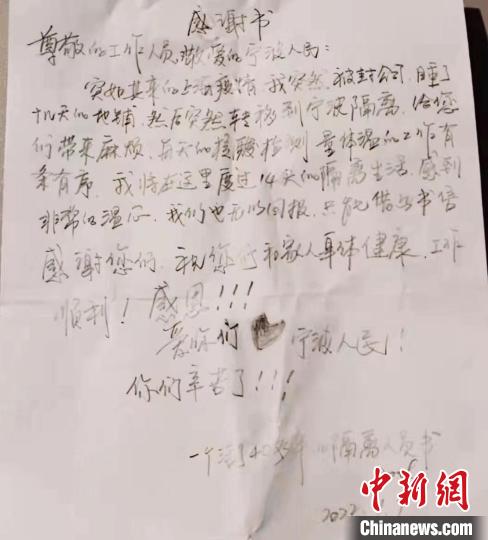 感谢书
尊敬的工作人员,敬爱的宁波人民:
突如其来的上海疫情,我突然被封公司,睡了
十几天的地铺,然后突然转移到宁波隔离,给您
们带来麻烦,每天的核酸检测,量体温的工作有
条有序,我将在这里度过14天的隔离生活,感到
非常的温心,我们也无以回报,只能借此书信
感谢您们,祝您们和家人身体健康,工作
顺利!感恩!!!
爱你们 宁波人民!
你们辛苦了!!!
一个 隔离人员书
2022
中新网
Chinanews.com